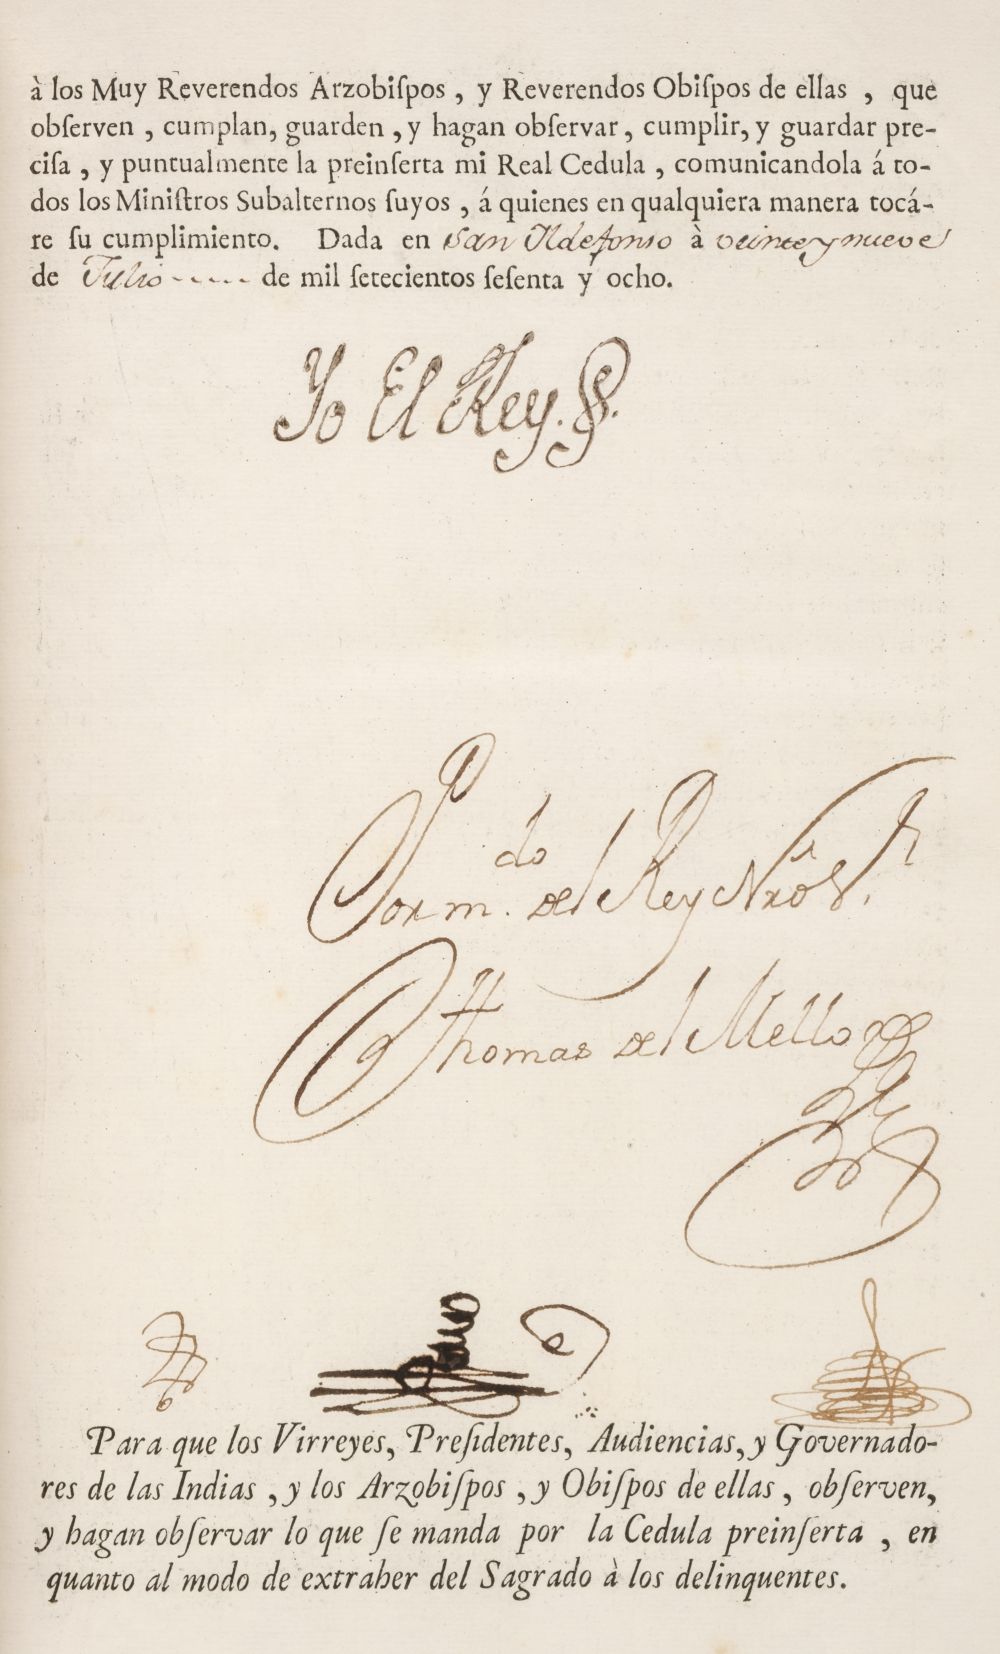 à los Muy Reverendos Arzobiſpos , y Reverendos Obiſpos de ellas , que
obſerven , cumplan, guarden , y hagan obſervar , cumplir, y guardar pre-
ciſa , y puntualmente la preinſerta mi Real Cedula , comunicandola á to-
dos los Miniſtros Subalternos ſuyos , á quienes en qualquiera manera tocá-
re ſu cumplimiento. Dada en San Ildefonso à veinte y nueve
de Julio ----- de mil ſetecientos ſeſenta y ocho.
Yo El Rey.
Por m.do del Rey Nrô S.r
Thomas del Mello
Para que los Virreyes, Preſidentes, Audiencias, y Governado-
res de las Indias , y los Arzobiſpos , y Obiſpos de ellas , obſerven,
y hagan obſervar lo que ſe manda por la Cedula preinſerta , en
quanto al modo de extraher del Sagrado à los delinquentes.